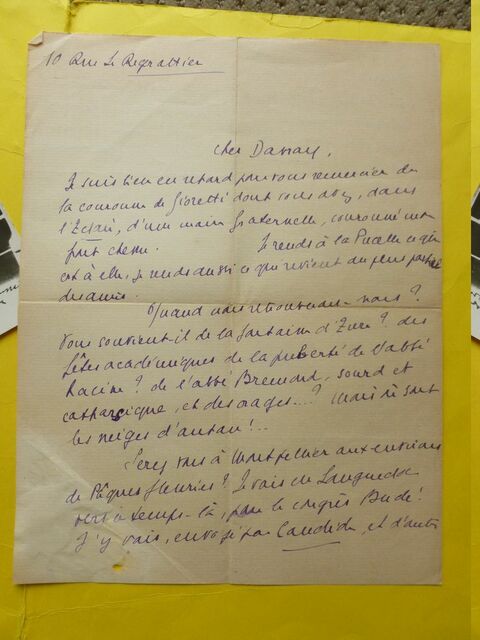 10 Rue Le Regrattier
Cher Darray,
Je suis bien en retard pour vous remercier de
la couronne de fioretti dont vous avez, dans
l'Eclair, d'une main fraternelle, couronné mon
front chenu. Je rends à la Pucelle ce qui
est à elle, je rends aussi ce qui revient au plus
des amis.
Quand nous retrouvons-nous ?
Vous souvient-il de la fontaine d'Eure ? des
fêtes académiques de la puberté de l'abbé
Racine ? de l'abbé Bremond, sourd et
et des orages...? Mais où sont
les neiges d'antan !..
Serez vous à Montpellier aux environs
de Pâques fleuries ? Je vais en Languedoc
vers ce temps-là, pour le congrès Budé !
J'y vais, envoyé par Candide, et d'autre